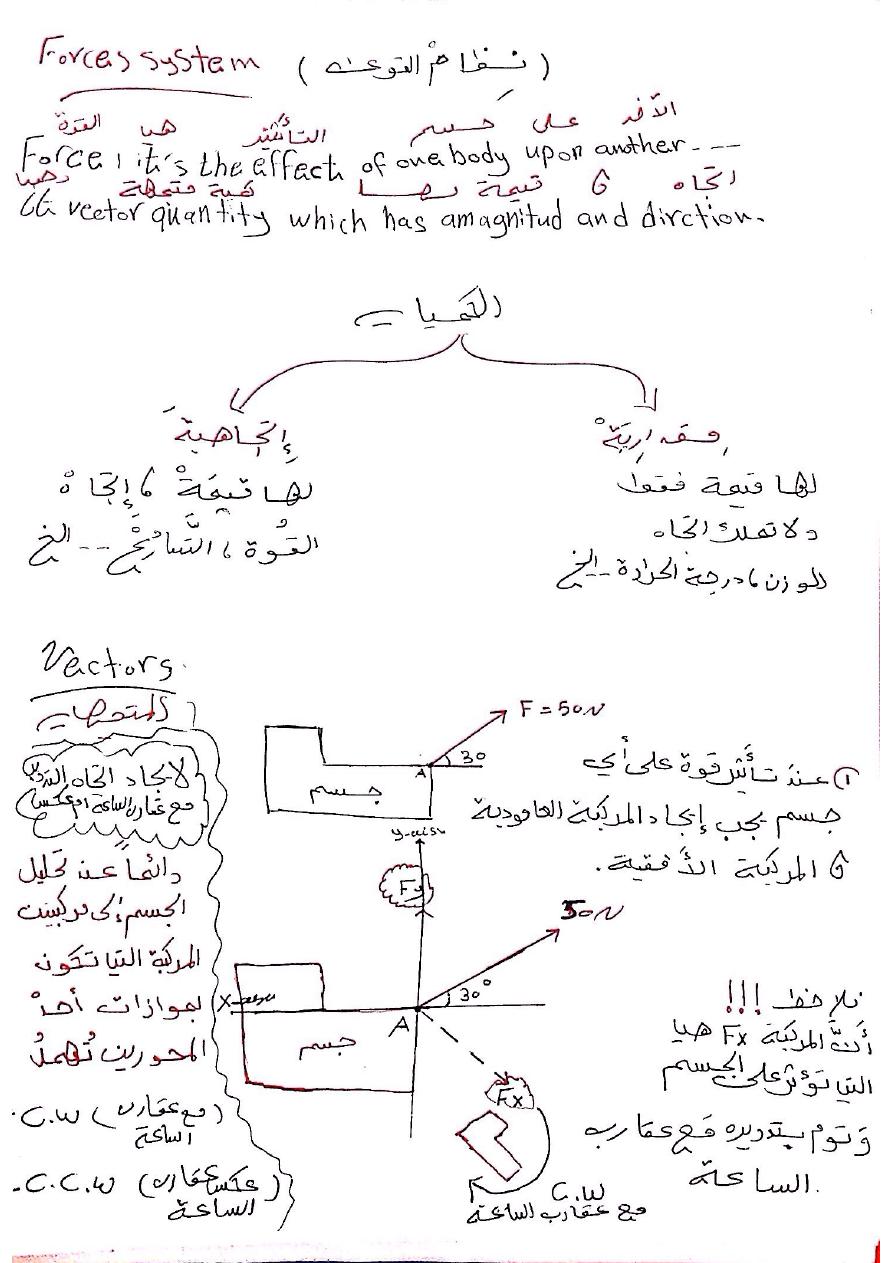 Forces system (نظام القوى)
القوة هي التأثير على جسم الآخر
Force, it's the effect of one body upon another ---
وهي كمية متجهة لها قيمة و اتجاه
vector quantity which has amagnitud and dirction.
الكميات
إتجاهية
مقدارية
لها قيمة، إتجاه
القوة، التسارع -- الخ
لها قيمة فقط
ولا تملك اتجاه
الوزن، درجة الحرارة -- الخ
Vectors.
المتجهات
لايجاد اتجاه
مع عقارب الساعة ام عكس
دائما عند تحليل
الجسم إلى مركبتين
المركبة التي تكون
بموازات أحد
المحورين تُهمل
C.W (مع عقارب
الساعة)
C.C.W (عكس عقارب
الساعة)
F = 50N
30
A
جسم
① عند تأثير قوة على أي
جسم يجب إيجاد المركبة العامودية
و المركبة الأفقية.
y-aisu
Fy
50N
30°
A
جسم
Fx
C.W
مع عقارب الساعة
فلاحظ !!!
أنَّ المركبة Fx هي
التي تؤثر على الجسم
وتقوم بتدويره مع عقارب
الساعة.